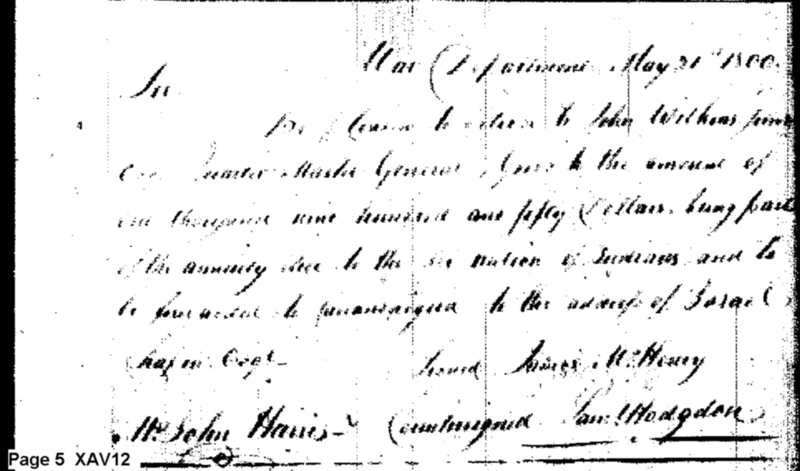 War Department May 31st 1800
Sir
Be pleased to deliver to John Wilkins junr
Esqr. Quarter Master General, Goods to the amount of
one thousand nine hundred and fifty Dollars, being part
of the annuity due to the six nation of Indians and to
be forwarded to Canandaigua to the address of Israel
Chapin Esqr.
Signed James McHenry
Mr John Harris
Countersigned Saml Hodgdon
Page 5 XAV12